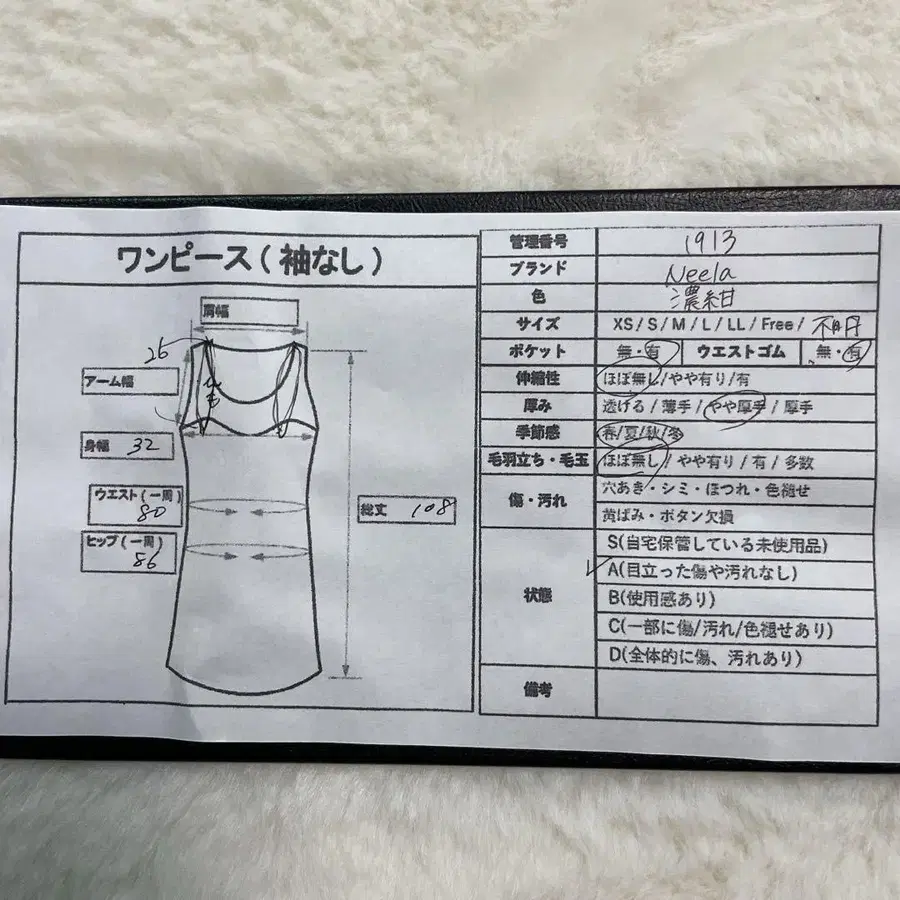 ワンピース(袖なし)
肩幅
26
アーム幅
身幅 32
ウエスト(一周)
80
ヒップ(一周)
86
総丈 108
管理番号 1913
ブランド Neela
色 濃紺
サイズ XS/S/M/L/LL/Free/不明
ポケット 無・有 ウエストゴム 無・有
伸縮性 ほぼ無し/やや有り/有
厚み 透ける/薄手/やや厚手/厚手
季節感 春/夏/秋/冬
毛羽立ち・毛玉 ほぼ無し/やや有り/有/多数
傷・汚れ 穴あき・シミ・ほつれ・色褪せ
黄ばみ・ボタン欠損
状態 S(自宅保管している未使用品)
A(目立った傷や汚れなし)
B(使用感あり)
C(一部に傷/汚れ/色褪せあり)
D(全体的に傷、汚れあり)
備考